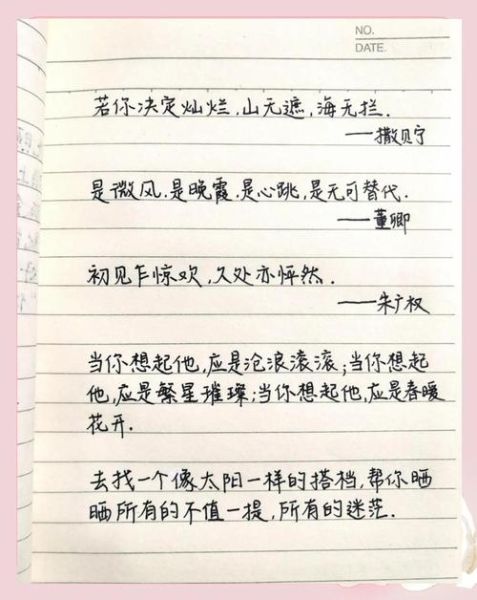 NO.
DATE.
若你决定灿烂,山无遮,海无拦.
——撒贝宁
是微风.是晚霞.是心跳,是无可替代.
——董卿
初见乍惊欢,久处亦怦然.
——朱广权
当你想起他,应是沧浪滚滚;当你想起
他,应是繁星璀璨;当你想起他,应是春暖
花开.
去找一个像太阳一样的搭档,帮你晒
晒所有的不值一提,所有的迷茫.